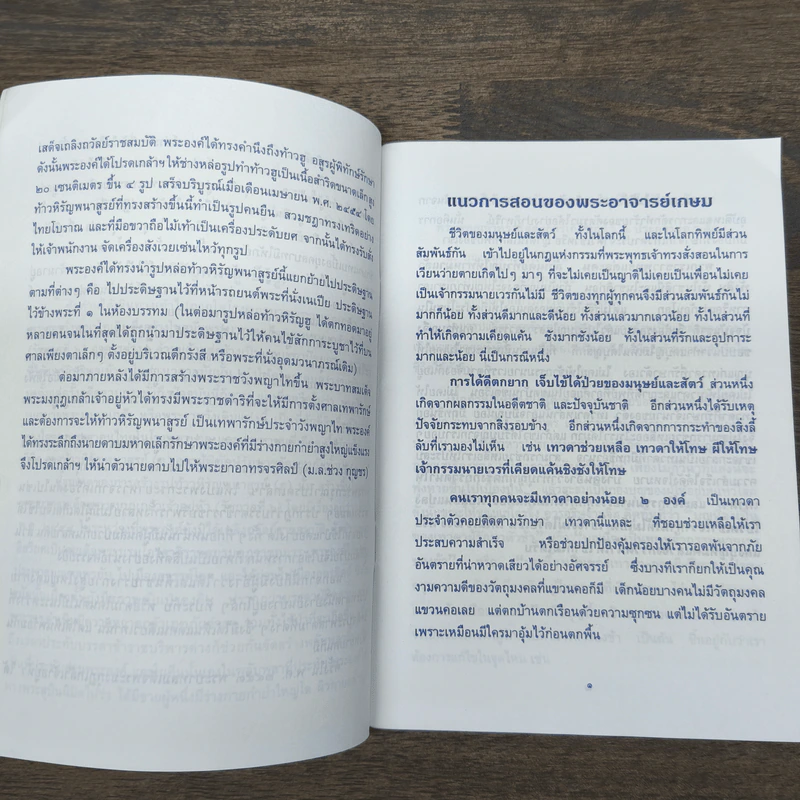 เสด็จเถลิงถวัลย์ราชสมบัติ พระองค์ได้ทรงคำนึงถึงท้าวฮู อสูรผู้พิทักษ์รักษา
ดังนั้นพระองค์ได้โปรดเกล้าฯ ให้ช่างหล่อรูปทำท้าวฮูเป็นเนื้อสำริดขนาดเล็กสูง
๒๐ เซนติเมตร ขึ้น ๔ รูป เสร็จบริบูรณ์เมื่อเดือนเมษายน พ.ศ. ๒๔๕๔ โดย
ท้าวหิรัญพนาสูรย์ที่ทรงสร้างขึ้นนี้ทำเป็นรูปคนยืน สวมชฎาทรงเทริดอย่าง
ไทยโบราณ และที่มือขวาถือไม้เท้าเป็นเครื่องประดับยศ จากนั้นได้ทรงรับสั่ง
ให้เจ้าพนักงาน จัดเครื่องสังเวยเซ่นไหว้ทุกรูป
พระองค์ได้ทรงนำรูปหล่อท้าวหิรัญพนาสูรย์นี้แยกย้ายไปประดิษฐาน
ตามที่ต่างๆ คือ ไปประดิษฐานไว้ที่หน้ารถยนต์พระที่นั่งเนเปีย ประดิษฐาน
ไว้ข้างพระที่ ๑ ในห้องบรรทม (ในต่อมารูปหล่อท้าวหิรัญฮู ได้ตกทอดมาอยู่
หลายคนจนในที่สุดได้ถูกนำมาประดิษฐานไว้ให้คนไข้สักการะบูชาไว้ที่บน
ศาลเพียงตาเล็กๆ ตั้งอยู่บริเวณตึกรังสี หรือพระที่นั่งอุดมวนาภรณ์เดิม)
ต่อมาภายหลังได้มีการสร้างพระราชวังพญาไทขึ้น พระบาทสมเด็จ
พระมงกุฎเกล้าเจ้าอยู่หัวได้ทรงมีพระราชดำริที่จะให้มีการตั้งศาลเทพารักษ์
และต้องการจะให้ท้าวหิรัญพนาสูรย์ เป็นเทพารักษ์ประจำวังพญาไท พระองค์
ได้ทรงระลึกถึงนายดาบมหาดเล็กรักษาพระองค์ที่มีร่างกายกำยำสูงใหญ่แข็งแรง
จึงโปรดเกล้าฯ ให้นำตัวนายดาบไปให้พระยาอาทรจรศิลป์ (ม.ล.ช่วง กุญชร)
แนวการสอนของพระอาจารย์เกษม
ชีวิตของมนุษย์และสัตว์ ทั้งในโลกนี้ และในโลกทิพย์มีส่วน
สัมพันธ์กัน เข้าไปอยู่ในกฎแห่งกรรมที่พระพุทธเจ้าทรงสั่งสอนในการ
เวียนว่ายตายเกิดไปๆ มาๆ ที่จะไม่เคยเป็นญาติไม่เคยเป็นเพื่อนไม่เคย
เป็นเจ้ากรรมนายเวรกันไม่มี ชีวิตของทุกผู้ทุกคนจึงมีส่วนสัมพันธ์กันไม่
มากก็น้อย ทั้งส่วนดีมากและดีน้อย ทั้งส่วนเลวมากเลวน้อย ทั้งในส่วนที่
ทำให้เกิดความเคียดแค้น ชังมากชังน้อย ทั้งในส่วนที่รักและอุปการะ
มากและน้อย นี่เป็นกรณีหนึ่ง
การได้ดีตกยาก เจ็บไข้ได้ป่วยของมนุษย์และสัตว์ ส่วนหนึ่ง
เกิดจากผลกรรมในอดีตชาติ และปัจจุบันชาติ อีกส่วนหนึ่งได้รับเหตุ
ปัจจัยกระทบจากสิ่งรอบข้าง อีกส่วนหนึ่งเกิดจากการกระทำของสิ่งลี้
ลับที่เรามองไม่เห็น เช่น เทวดาช่วยเหลือ เทวดาให้โทษ ผีให้โทษ
เจ้ากรรมนายเวรที่เคียดแค้นชิงชังให้โทษ
คนเราทุกคนจะมีเทวดาอย่างน้อย ๒ องค์ เป็นเทวดา
ประจำตัวคอยติดตามรักษา เทวดานี่แหละ ที่ชอบช่วยเหลือให้เรา
ประสบความสำเร็จ หรือช่วยปกป้องคุ้มครองให้เรารอดพ้นจากภัย
อันตรายที่น่าหวาดเสียวได้อย่างอัศจรรย์ ซึ่งบางทีเราก็ยกให้เป็นคุณ
งามความดีของวัตถุมงคลที่แขวนคอก็มี เด็กน้อยบางคนไม่มีวัตถุมงคล
แขวนคอเลย แต่ตกบ้านตกเรือนด้วยความซุกซน แต่ไม่ได้รับอันตราย
เพราะเหมือนมีใครมาอุ้มไว้ก่อนตกพื้น
๑